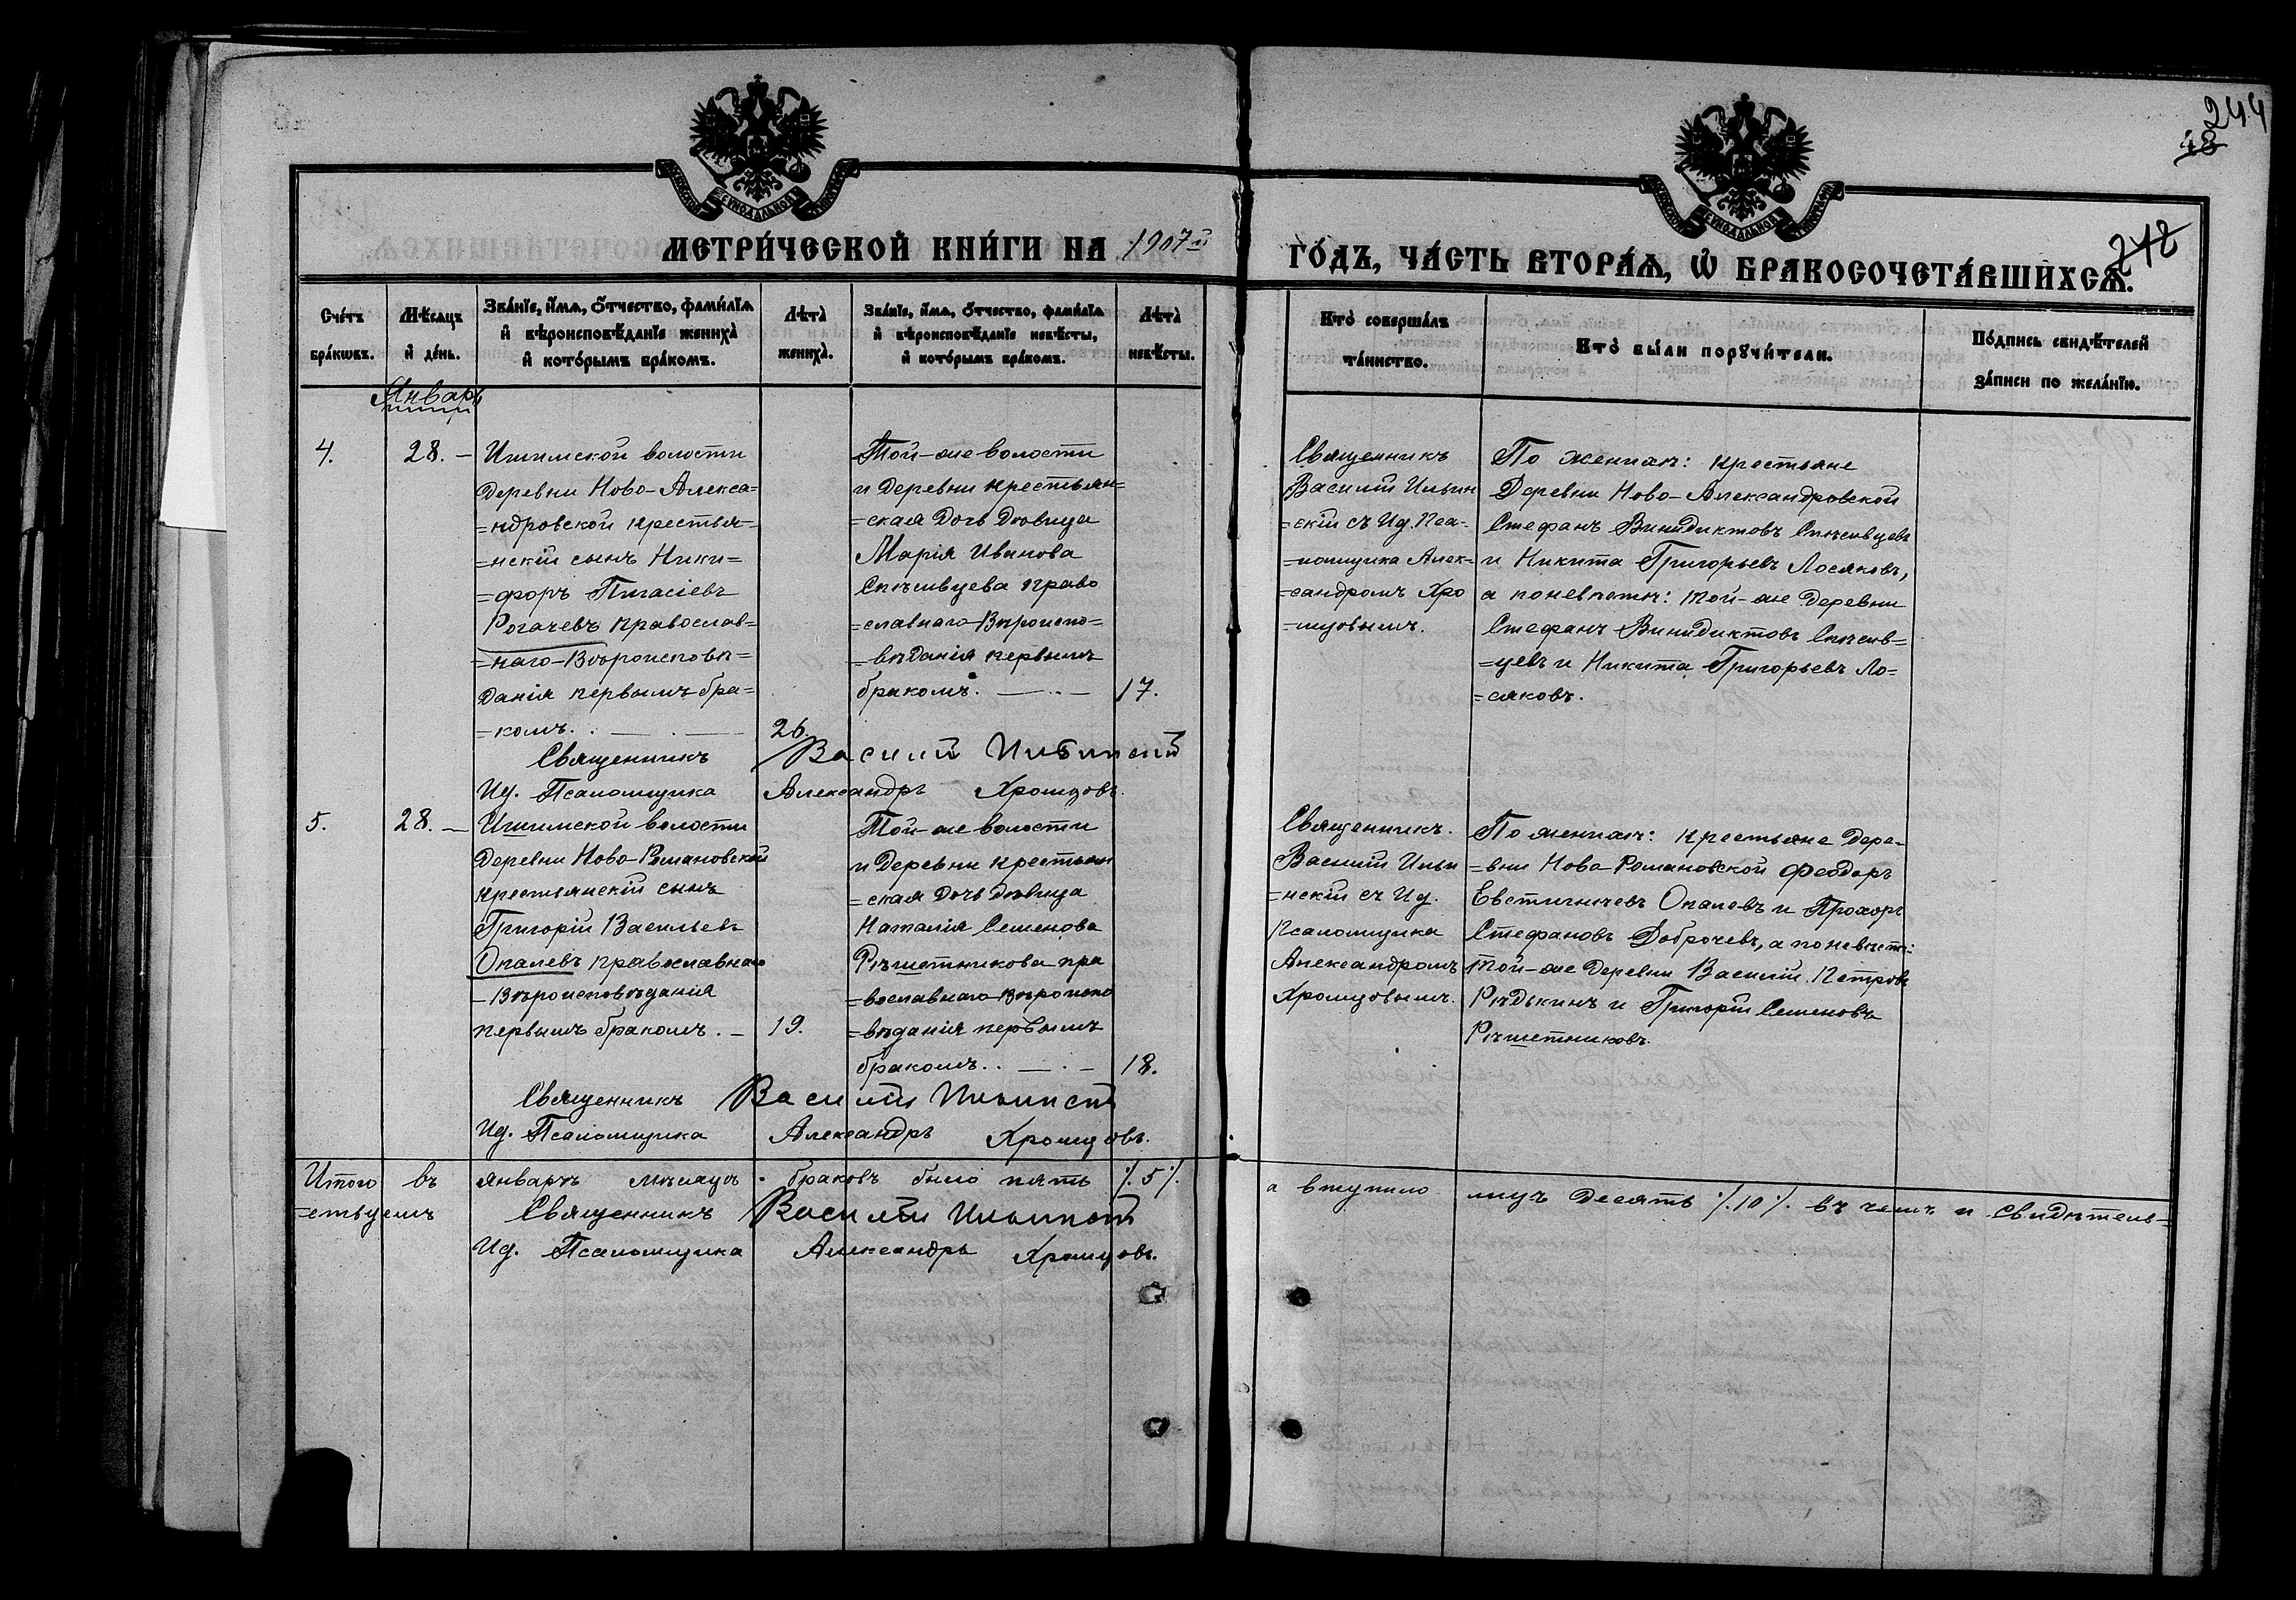 244
48
242
МЕТРИ́ЧЕСКОЙ КНИ́ГИ НА 1907й
ГО́ДЪ, ЧА́СТЬ ВТОРА́Ѧ, Ѡ҆ БРАКОСОЧЕТА́ВШИХСѦ.
Сче́тъ бра́кѡвъ.
Мѣ́сяцъ и҆ де́нь.
Зва́нїе, и҆́мѧ, ѻ҆́тчество, фами́лїѧ
и҆ вѣроисповѣ́данїе женихà
и҆ кото́рымъ бра́комъ.
Лѣ́та женихà.
Зва́нїе, и҆́мѧ, ѻ҆́тчество, фами́лїѧ
и҆ вѣроисповѣ́данїе невѣ́сты,
и҆ кото́рымъ бра́комъ.
Лѣ́та невѣ́сты.
Кто̀ соверша́лъ
та́инство.
Кто̀ бы́ли порꙋчи́тели.
По́дпись свидѣ́телей
за́писи по жела́нїю.
Январь
4.
28. —
Ишимской волости
деревни Ново-Алекса=
=ндровской крестья=
=нскій сынъ Ники=
=форъ Пигасіевъ
Рогачевъ православ=
=наго-Вѣроисповѣ=
данія первымъ бра=
=комъ. . — . —
26.
Той-же волости
и деревни крестьян=
=ская дочь дѣвица
Марія Иванова
Спѣсивцева право
=славнаго-Вѣроиспо=
=вѣданія первымъ
бракомъ. — . —
17.
Священникъ
Василій Ильин
=скій съ Ид. Пса=
=ломщика Алек=
=сандромъ Хро
=мцовымъ.
По женихѣ: крестьяне
Деревни Ново-Александровской
Стефанъ Винидиктовъ Спѣсивцевъ
и Никита Григорьевъ Лосяковъ,
а по невѣстѣ: той-же деревни
Стефанъ Винидиктовъ Спѣсив=
=цевъ и Никита Григорьевъ Ло=
=сяковъ.
Священникъ Василій Ильинскій
Ид. Псаломщика Александръ Хромцовъ.
5.
28. —
Ишимской волости
деревни Ново-Романовской
крестьянскій сынъ
Григорій Васильевъ
Опалевъ православнаго
-Вѣроисповѣданія
первымъ бракомъ. —
19.
Той-же волости
и деревни крестьян
=ская дочь дѣвица
Наталія Семенова
Рѣшетникова пра
=вославнаго-Вѣроиспо
=вѣданія первымъ
бракомъ. . — . —
18.
Священникъ.
Василій Ильи
=нскій съ Ид.
Псаломщика
Александромъ
Хромцовымъ.
По женихѣ: крестьяне дере=
=вни Ново-Романовской Феодоръ
Евстигнѣевъ Опалевъ и Прохоръ
Стефановъ Доброчевъ, а по невѣстѣ:
той-же деревни Василій Петровъ
Рѣдькинъ и Григорій Семеновъ
Рѣшетниковъ.
Священникъ Василій Ильинскій
Ид. Псаломщика Александръ Хромцовъ.
Итого въ январѣ мѣсяцѣ браковъ было пять ./.5./. а вступило лицъ десять ./.10./. въ чемъ и свидѣтель=
=ствуемъ Священникъ Василій Ильинскій
Ид. Псаломщика Александръ Хромцовъ.